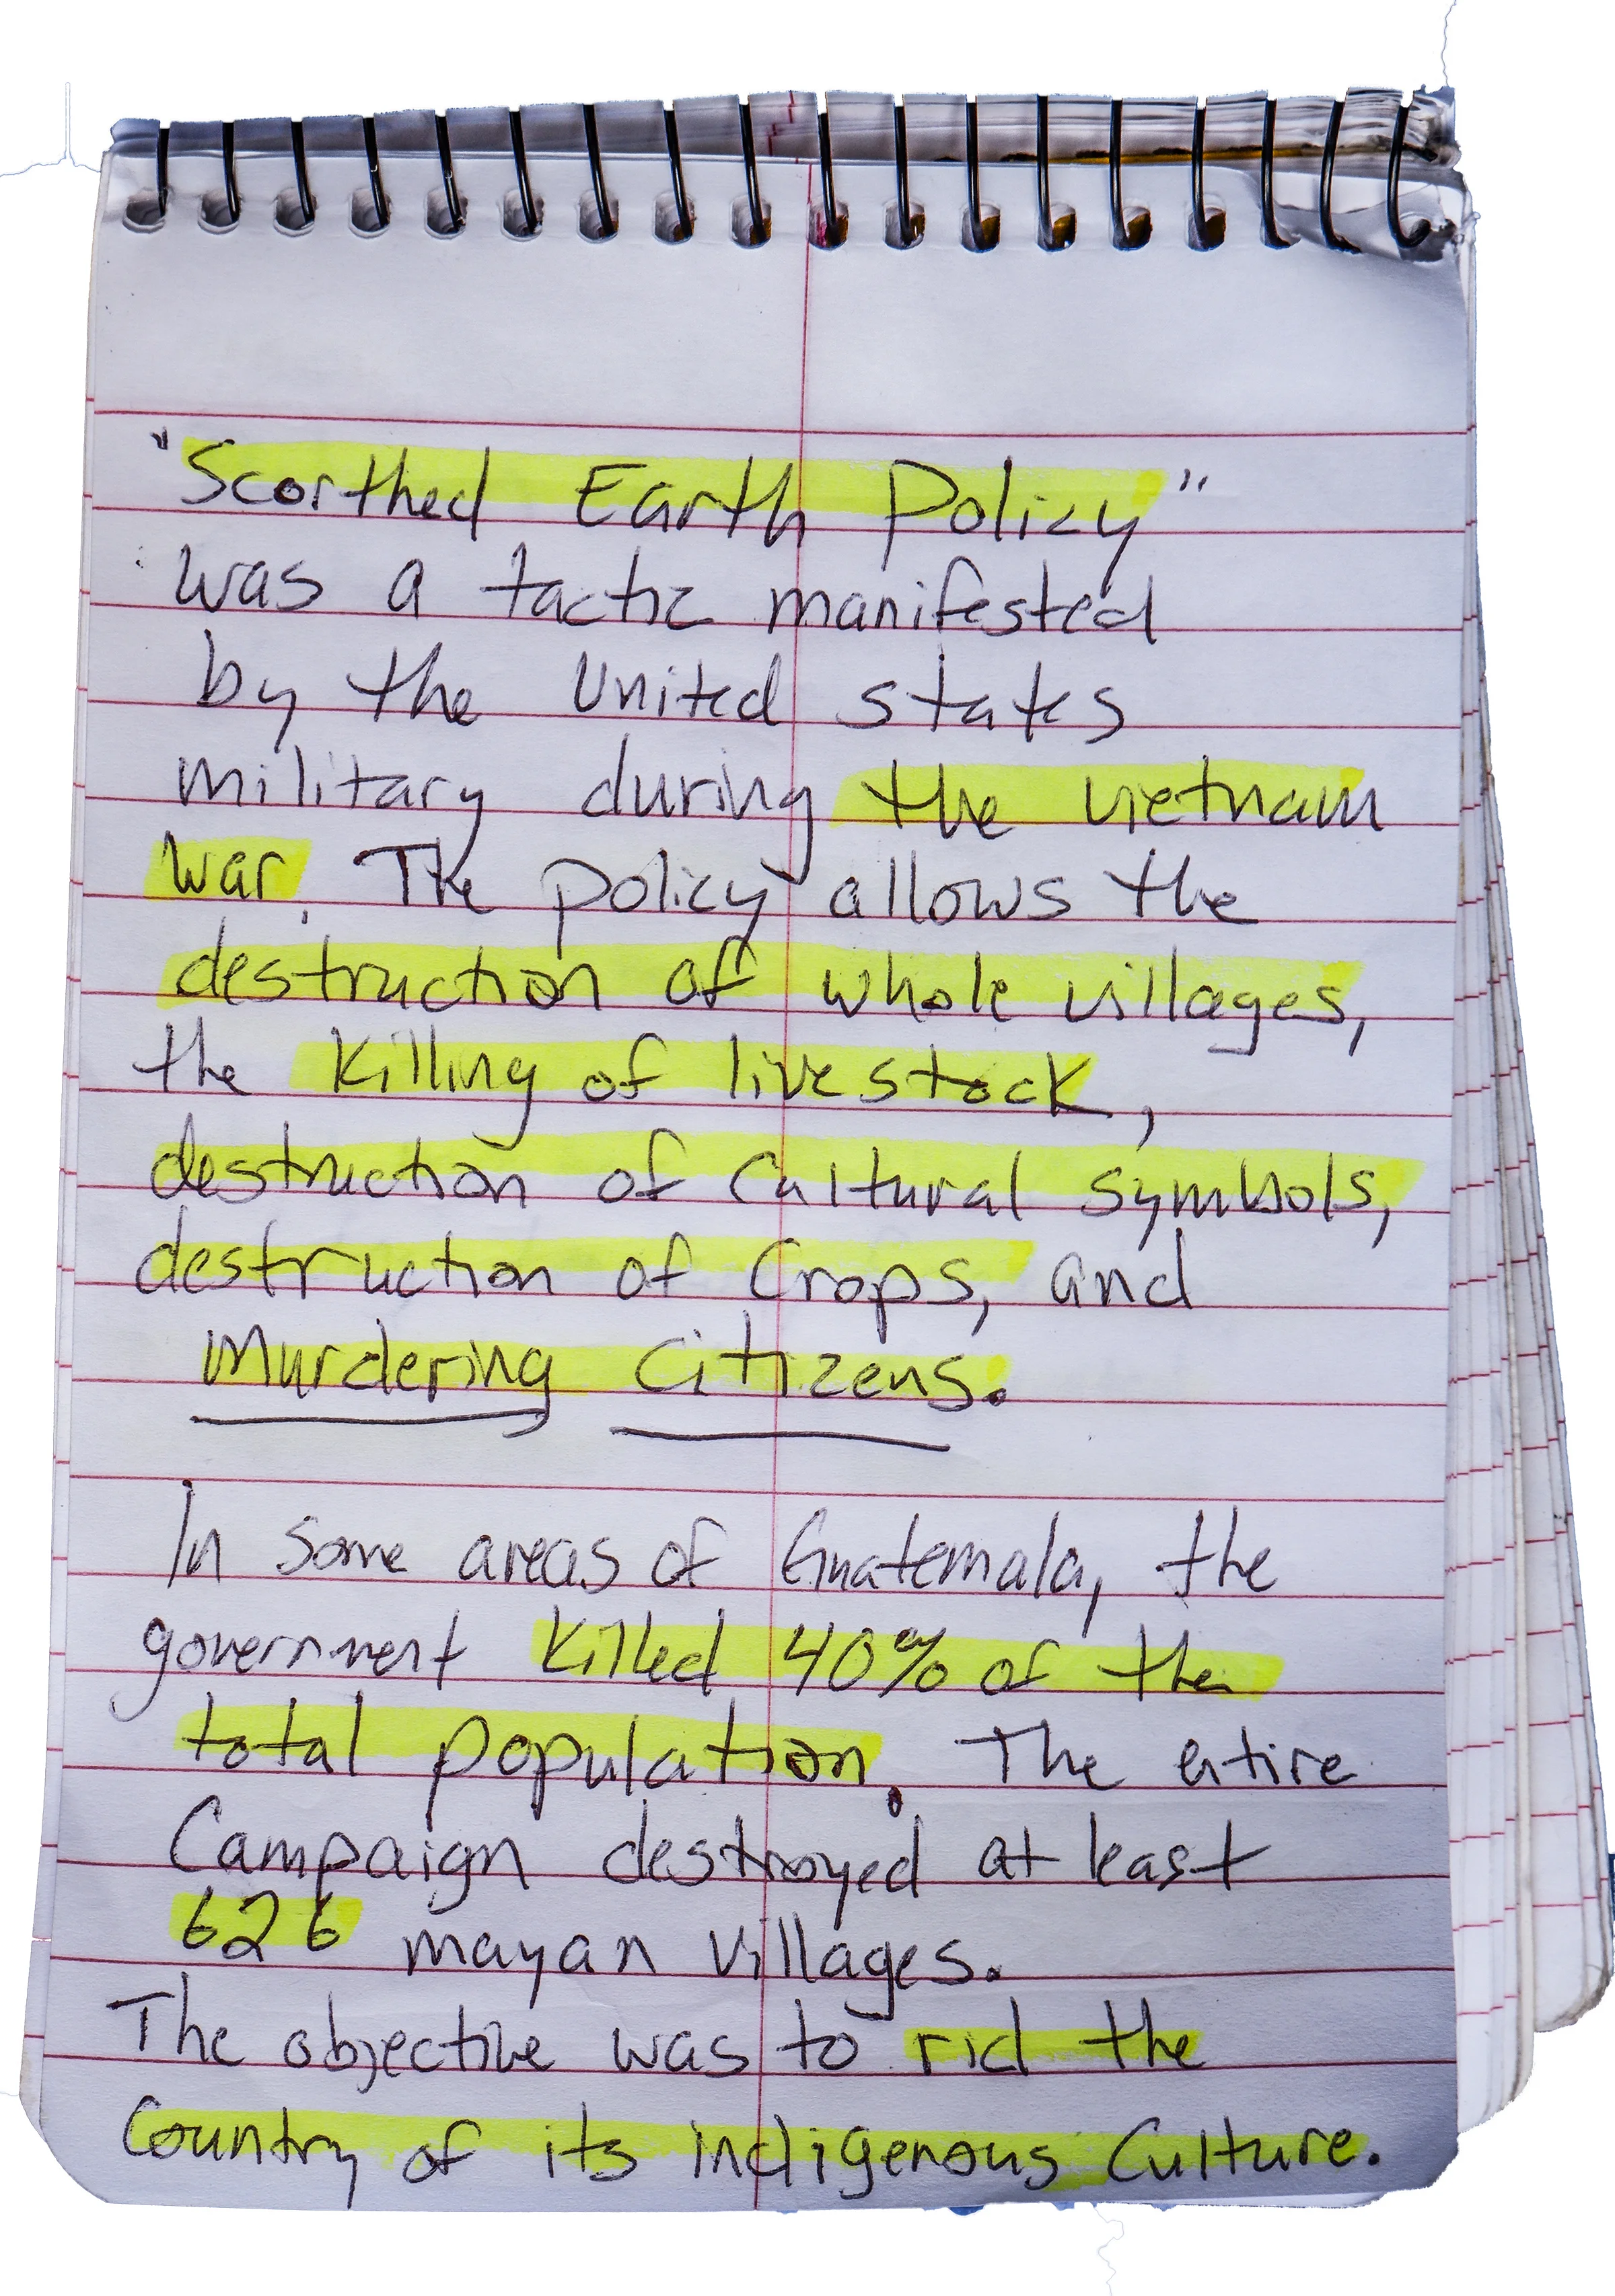 "Scorthed Earth Policy"
was a tactic manifested
by the United states
military during the vietnam
war. The policy allows the
destruction of whole villages,
the killing of livestock,
destruction of Cultural symbols,
destruction of Crops, and
Murdering Citizens.
In some areas of Guatemala, the
government killed 40% of the
total population. The entire
Campaign destroyed at least
626 mayan villages.
The objective was to rid the
Country of its indigenous Culture.